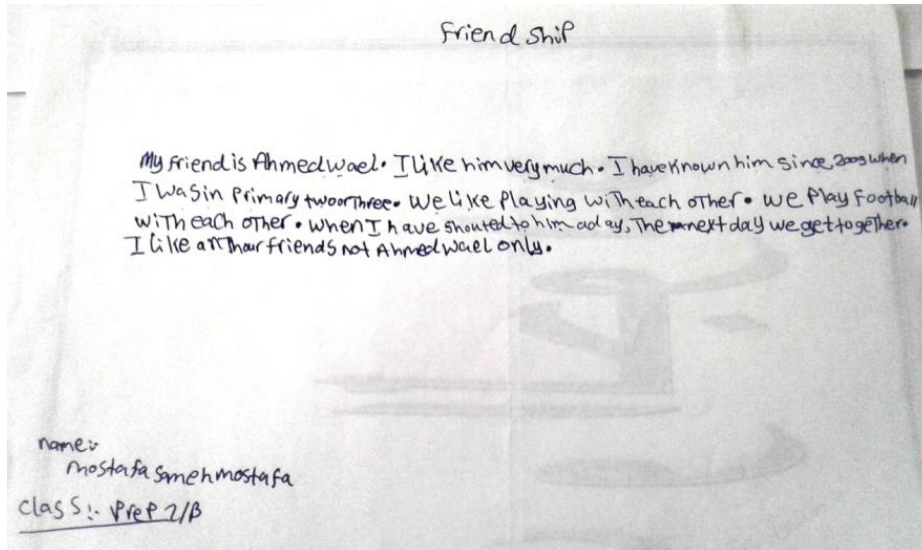 Friend Ship
My friend is Ahmed wael. I like him very much. I have known him since, 2009 when
I was in Primary two or Three. We like Playing with each other. we Play Football
with each other. when I have shouted to him a day, The next day we get together.
I like friends not Ahmed wael only.
name:
mostafa sameh mostafa
class:- Prep 2/B